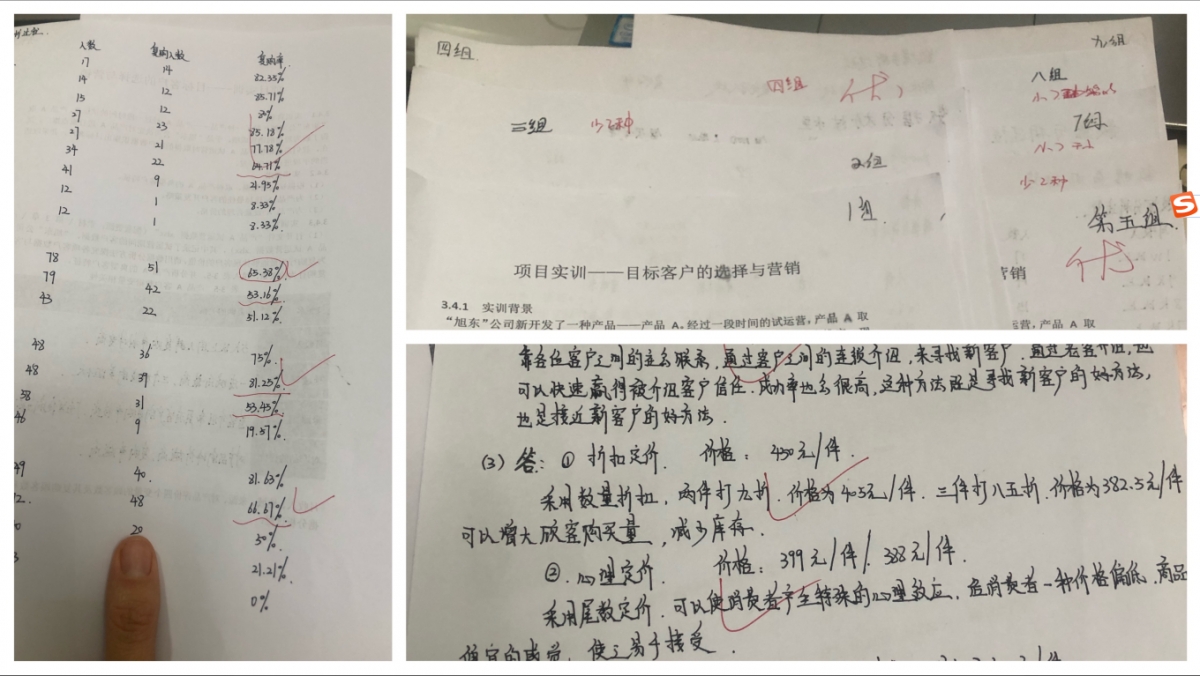 人数 复购人数 复购率
17 14 82.35%
14 12 85.71%
15 12 80%
27 23 85.18%
27 21 77.78%
34 22 64.71%
41 9 21.95%
12 1 8.33%
12 1 8.33%
78 51 65.38%
79 42 53.16%
43 22 51.12%
48 36 75%
48 39 81.25%
58 31 53.45%
46 9 19.57%
49 40 81.63%
48 66.67%
20 50%
21.21%
0%
四组
四组 优
三组 少2种
2组
1组
项目实训——目标客户的选择与营销
3.4.1 实训背景
“旭东”公司新开发了一种产品——产品 A。经过一段时间的试运营，产品 A 取
九组
八组
7组
少2种
第五组
优
营销
运营，产品 A 取
靠各位客户之间的主么联系，通过客户之间的连锁介绍，来寻找新客户．通过老客介绍，也
可以快速赢得被介绍客户信任．成功率也么很高，这种方法既是寻找新客户的好方法，
也是接近新客户的好方法．
(3) 答：① 折扣定价． 价格：450元/件．
采用数量折扣，两件打九折．价格为405元/件．三件打八五折．价格为382.5元/件
可以增大顾客购买量，减少库存．
②．心理定价． 价格：399元/件/．388元/件．
采用尾数定价．可以使消费者产生特殊的心理效应，给消费者一种价格偏低，商品
便宜的感觉，使之易于接受．